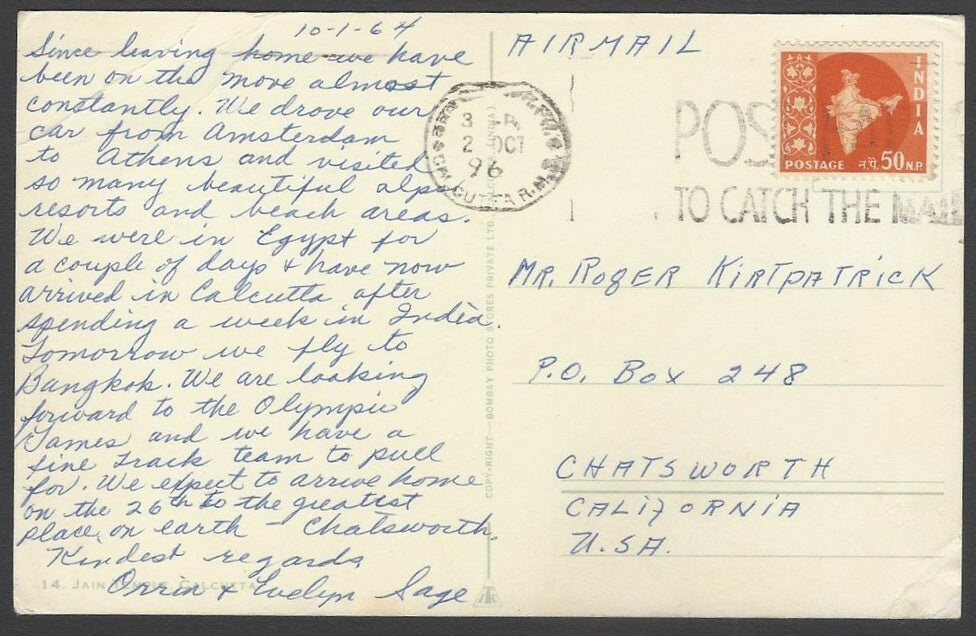 10-1-64
Since leaving home we have
been on the move almost
constantly. We drove our
car from Amsterdam
to Athens and visited
so many beautiful alps
resorts and beach areas.
We were in Egypt for
a couple of days & have now
arrived in Calcutta after
spending a week in India.
Tomorrow we fly to
Bangkok. We are looking
forward to the Olympic
Games and we have a
fine track team to pull
for. We expect to arrive home
on the 26th to the greatest
place on earth – Chatsworth.
Kindest regards
Orrin & Evelyn Sage
14. JAIN TEMPLE, CALCUTTA
COPY-RIGHT — BOMBAY PHOTO STORES PRIVATE LTD.
AIRMAIL
3
2 OCT
96
CUTTA R.M.S.
POS
TO CATCH THE MAIL
INDIA
POSTAGE न.पै. 50 N.P.
MR. ROGER KIRTPATRICK
P.O. BOX 248
CHATSWORTH
CALIFORNIA
U.S.A.